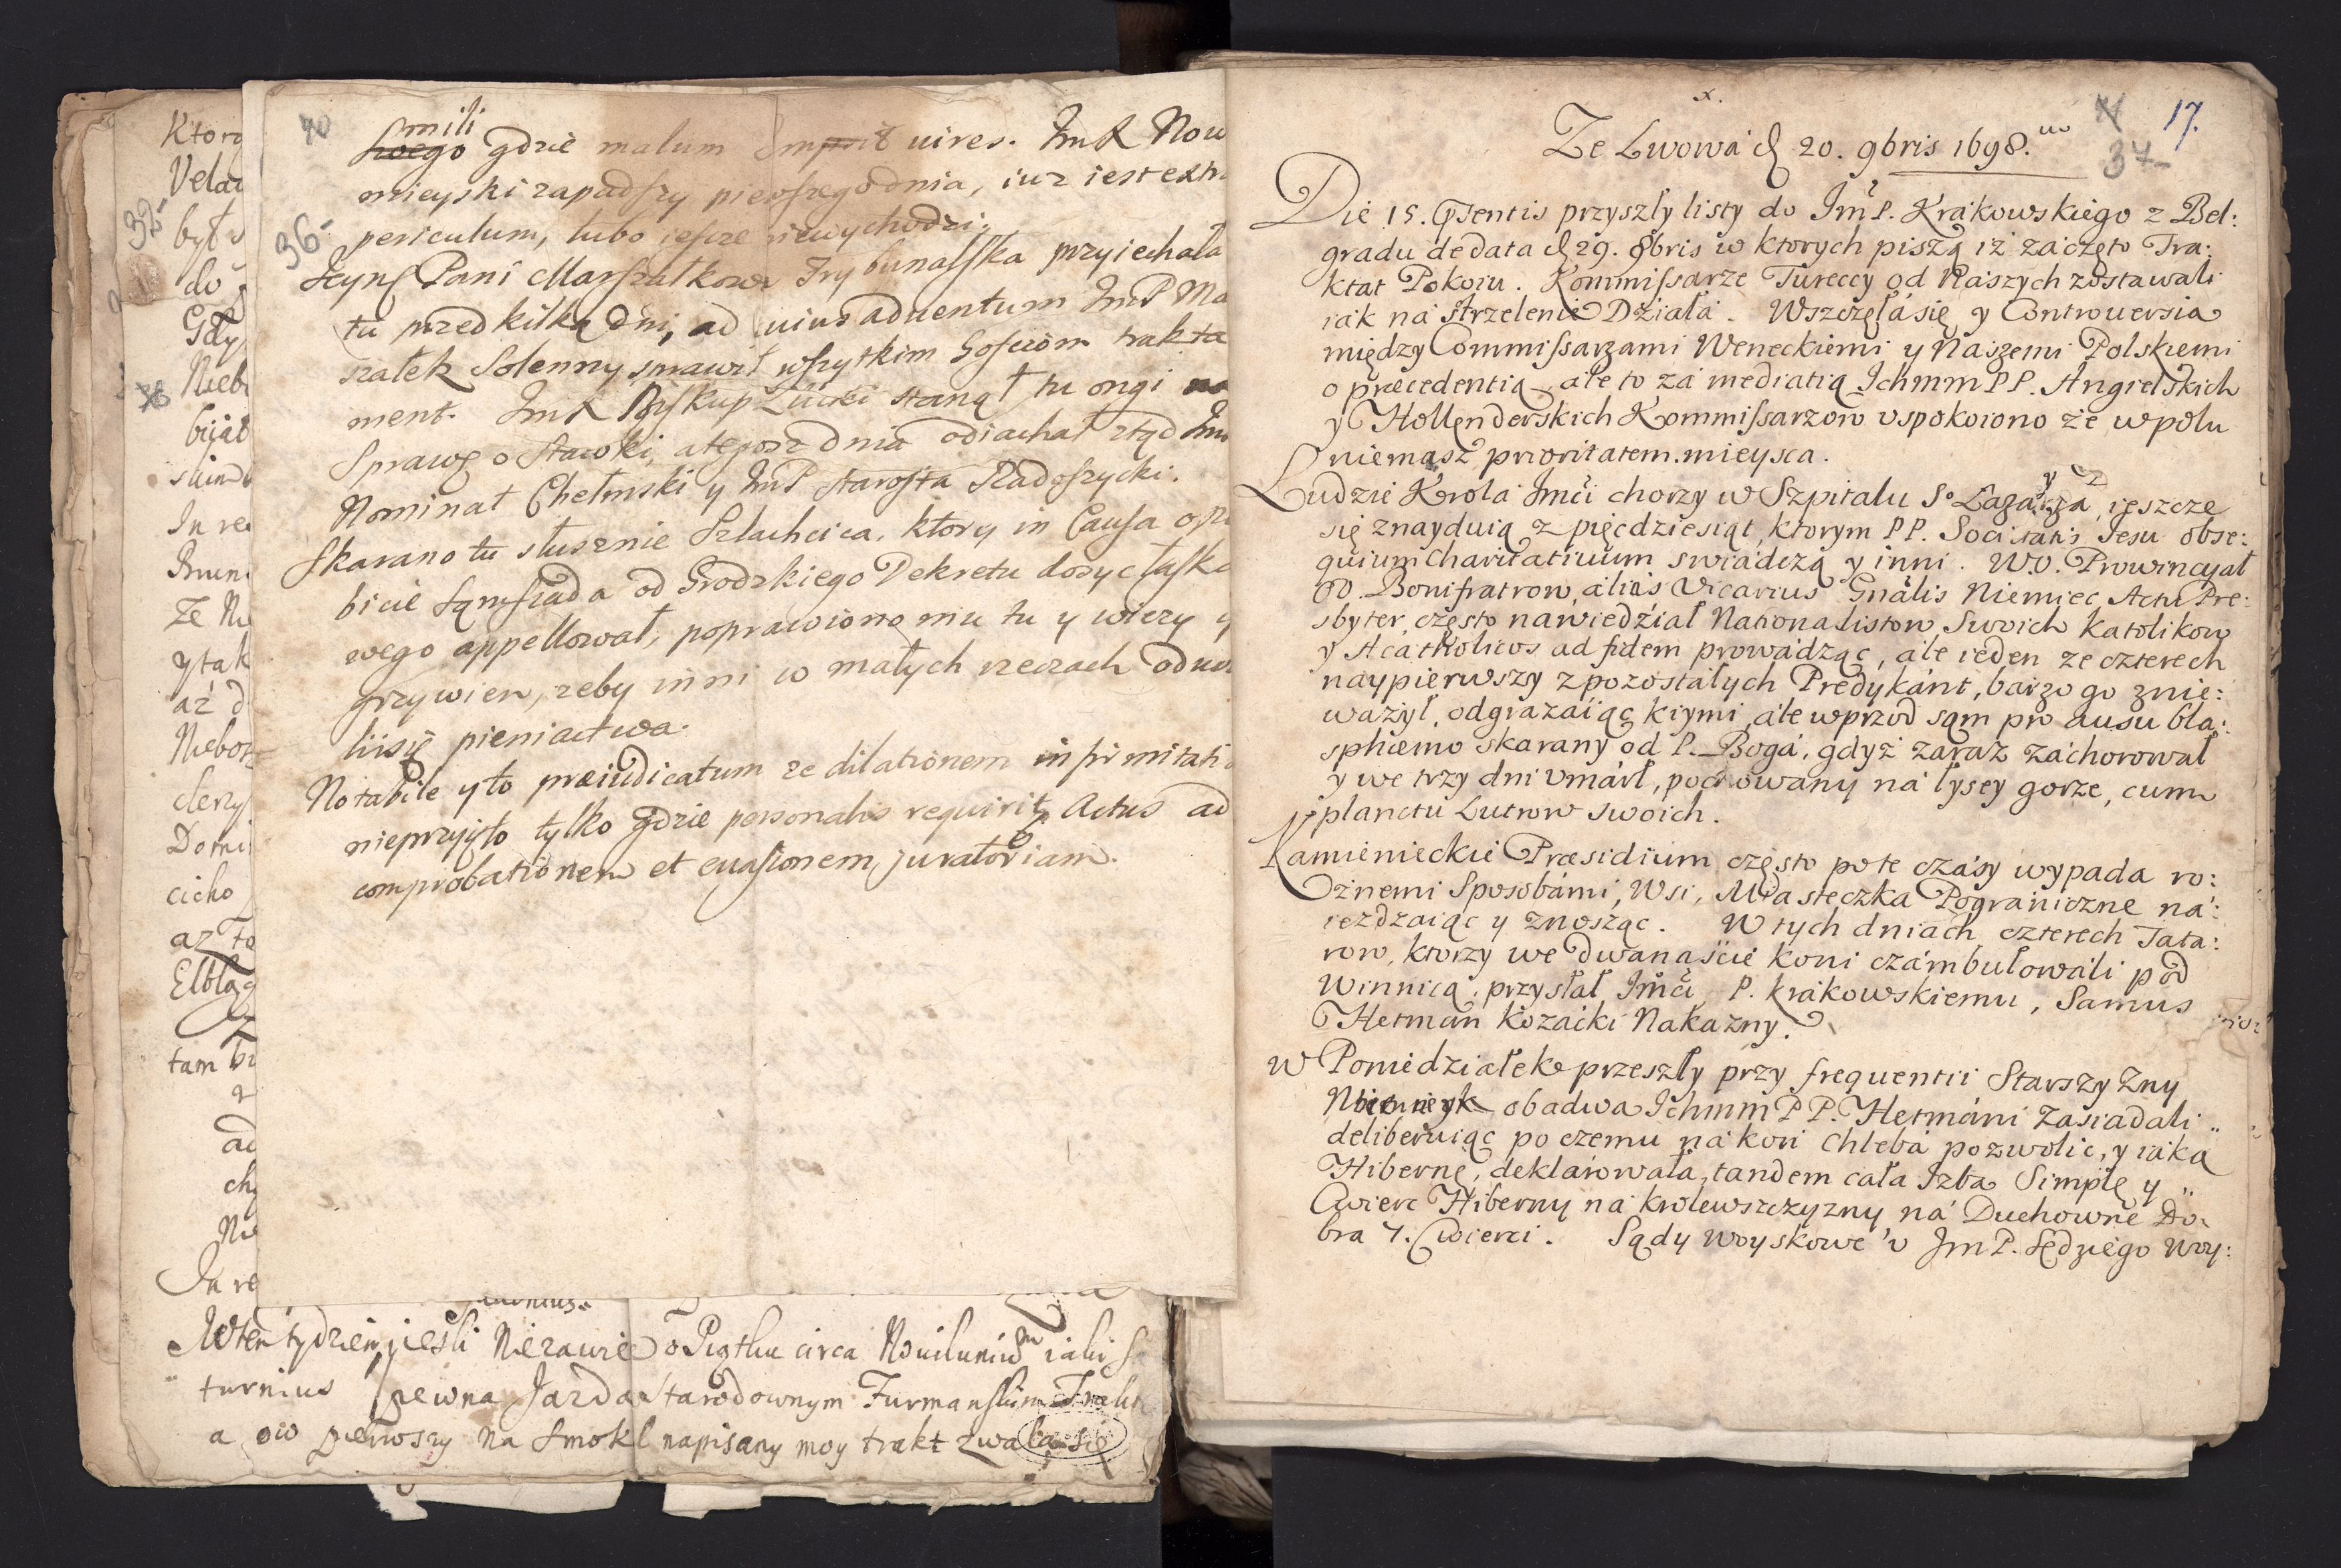 Ktorą
Velar
był s
do
Gdy
Nieb
bijał
In re
Ze Ni
y tak
aż d
Niebos
Domi
cicho
az To
Elbląg
tam bi
ad
chy
In re
32.
40
36.
mili
swego gdzie malum vires. ImX Now
mieyski zapadszy pierszego dnia, iuz iest extr
periculum, lubo iescze niewychodzi.
Jeyms Pani Marszałkowa Trybunalska przyiechała
tu przed kilką dni, ad cuius aduentum ImP Ma
rszałek Solenny sprawił wszytkim Gosciom trakta
ment. ImX Biskup Łucki stanął tu ongi
Sprawę o Stawki, a tegosz dnia odiachał ztąd Im
Nominat Chełmski y ImP Starosta Radoszycki.
Skarano tu słusznie Szlachcica, ktory in Causa o
bicie Sąmsiada od Grodzkiego Dekretu dosyc łaska
wego appellował, poprawiono mu tu y wiezy y
grzywien, zeby inni w małych rzeczach oducz
lisię pieniactwa.
Notabile y to præiudicatum ze dilationem infirmitatis
nieprzyięto tylko gdzie personalis requiritr Actus ad
comprobationem et euasionem juratoriam.
W ten tydzien, iesli Niezawie o Piątku circa Nouiluniũm iaki Sa
turnius pewna Jazda Starodownym Furmanskim Trakt
a ow pierwszy na Smokl napisany moy trakt zwala się
x.
41 17.
37
Ze Lwowa d 20. 9bris 1698.
Die 15. Prsentis przyszły listy do Jm P. Krakowskiego z Bel:
gradu de data d 29. 8bris w ktorych piszą iż zaczęto Tra:
ktat Pokoiu. Kommissarze Tureccy od Naszych zostawali
iak na strzelenie Działa. Wszczęła się y Controuersia
między Commissarzami Weneckiemi y Naszemi Polskiemi
o præcedentią, ale to za mediatią Ichmm PP. Angielskich
y Hollenderskich Kommissarzow uspokoiono że w polu
niemasz prioritatem mieysca.
Ludzie Krola Jmci chorzy w Szpitalu So Łazarza, ieszcze
się znayduią z pięcdziesiąt, ktorym PP. Societatis Jesu obse:
quium Charitatiuum swiadczą y inni. W.O. Prowincyał
OO. Bonifratrow, alias Vicarius Gnalis Niemiec Actu Pre:
sbyter, często nawiedział Nationalistow Swoich Katolikow
y Acatholicos ad fidem prowadząc, ale ieden ze czterech
naypierwszy z pozostałych Predykant, barzo go znie:
ważył, odgrazaiąc kiymi, ale wprzod sąm pro ausu bla:
sphemo skarany od P. Boga, gdyż zaraz zachorował
y we trzy dni umarł, pochowany na łysey gorze, cum
planctu Lutrow swoich.
Kamienieckie Præsidium często po te czasy wypada ro:
żnemi Sposobami, Wsi, Miasteczka Pograniczne na:
ieżdzaiąc y znosząc. W tych dniach czterech Tata:
row, ktorzy we dwanaście koni czambułowali pod
Winnicą, przysłał Jmci P. Krakowskiemu, Samus
Hetman Kozacki Nakazny.
W Poniedziałek przeszły przy frequentii Starszyzny
obadwa Ichmm PP. Hetmani zasiadali
deliberuiąc po czemu na koń chleba pozwolic, y iaką
Hibernę, deklarowała tandem cała Izba Simplę y
Cwierc Hiberny na krolewszczyzny na Duchowne Do:
bra 7. Cwierci. Sądy Woyskowe u JmP. Sędziego Woy: